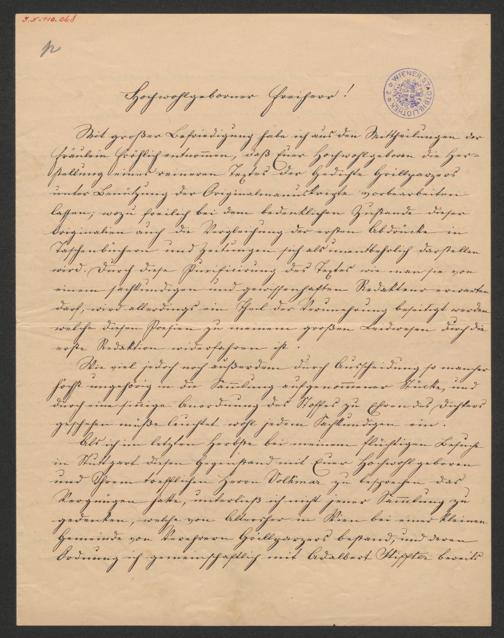 Hochwohlgeborner Freiherr!
Mit großer Befriedigung habe ich aus den Mittheilungen der
Fräulein Fröhlich entnommen, daß Euer Hochwohlgeboren die Her-
stellung eines reineren Textes der Gedichte Grillparzers
unter Benützung der Originalmanuskripte vorbearbeiten
lassen, wozu freilich bei dem bedenklichen Zustande dieser
Originalien auch die Vergleichung der ersten Abdrücke in
Taschenbüchern und Zeitungen sich als unentbehrlich darstellen
wird. Durch diese Purificirung des Textes wie man sie von
einem sachkundigen und gewissenhaften Redakteur erwarten
darf, wird allerdings ein Theil der Verunehrung beseitigt werden
welche diesen Poesien zu meinem großen Leidwesen durch die
erste Redaktion widerfahren ist.
Wie viel jedoch noch außerdem durch Ausscheidung so mancher
höchst ungehörig in die Sammlung aufgenommener Stücke, und
durch eine sinnige Anordnung des Stoffes zu Ehren des Dichters
geschehen müße leuchtet wohl jedem Sachkundigen ein.
Als ich im letzten Herbste bei meinem flüchtigen Besuche
in Stuttgart diesen Gegenstand mit Euer Hochwohlgeboren
und Ihrem trefflichen Herrn Vollmer zu besprechen das
Vergnügen hatte, unterließ ich nicht jener Sammlung zu
gedenken, welche von Altersher in Wien bei einer kleinen
Gemeinde von Verehrern Grillparzers bestand, und deren
Ordnung ich gemeinschaftlich mit Adalbert Stifter bereits
WIENER STADTBIBLIOTHEK